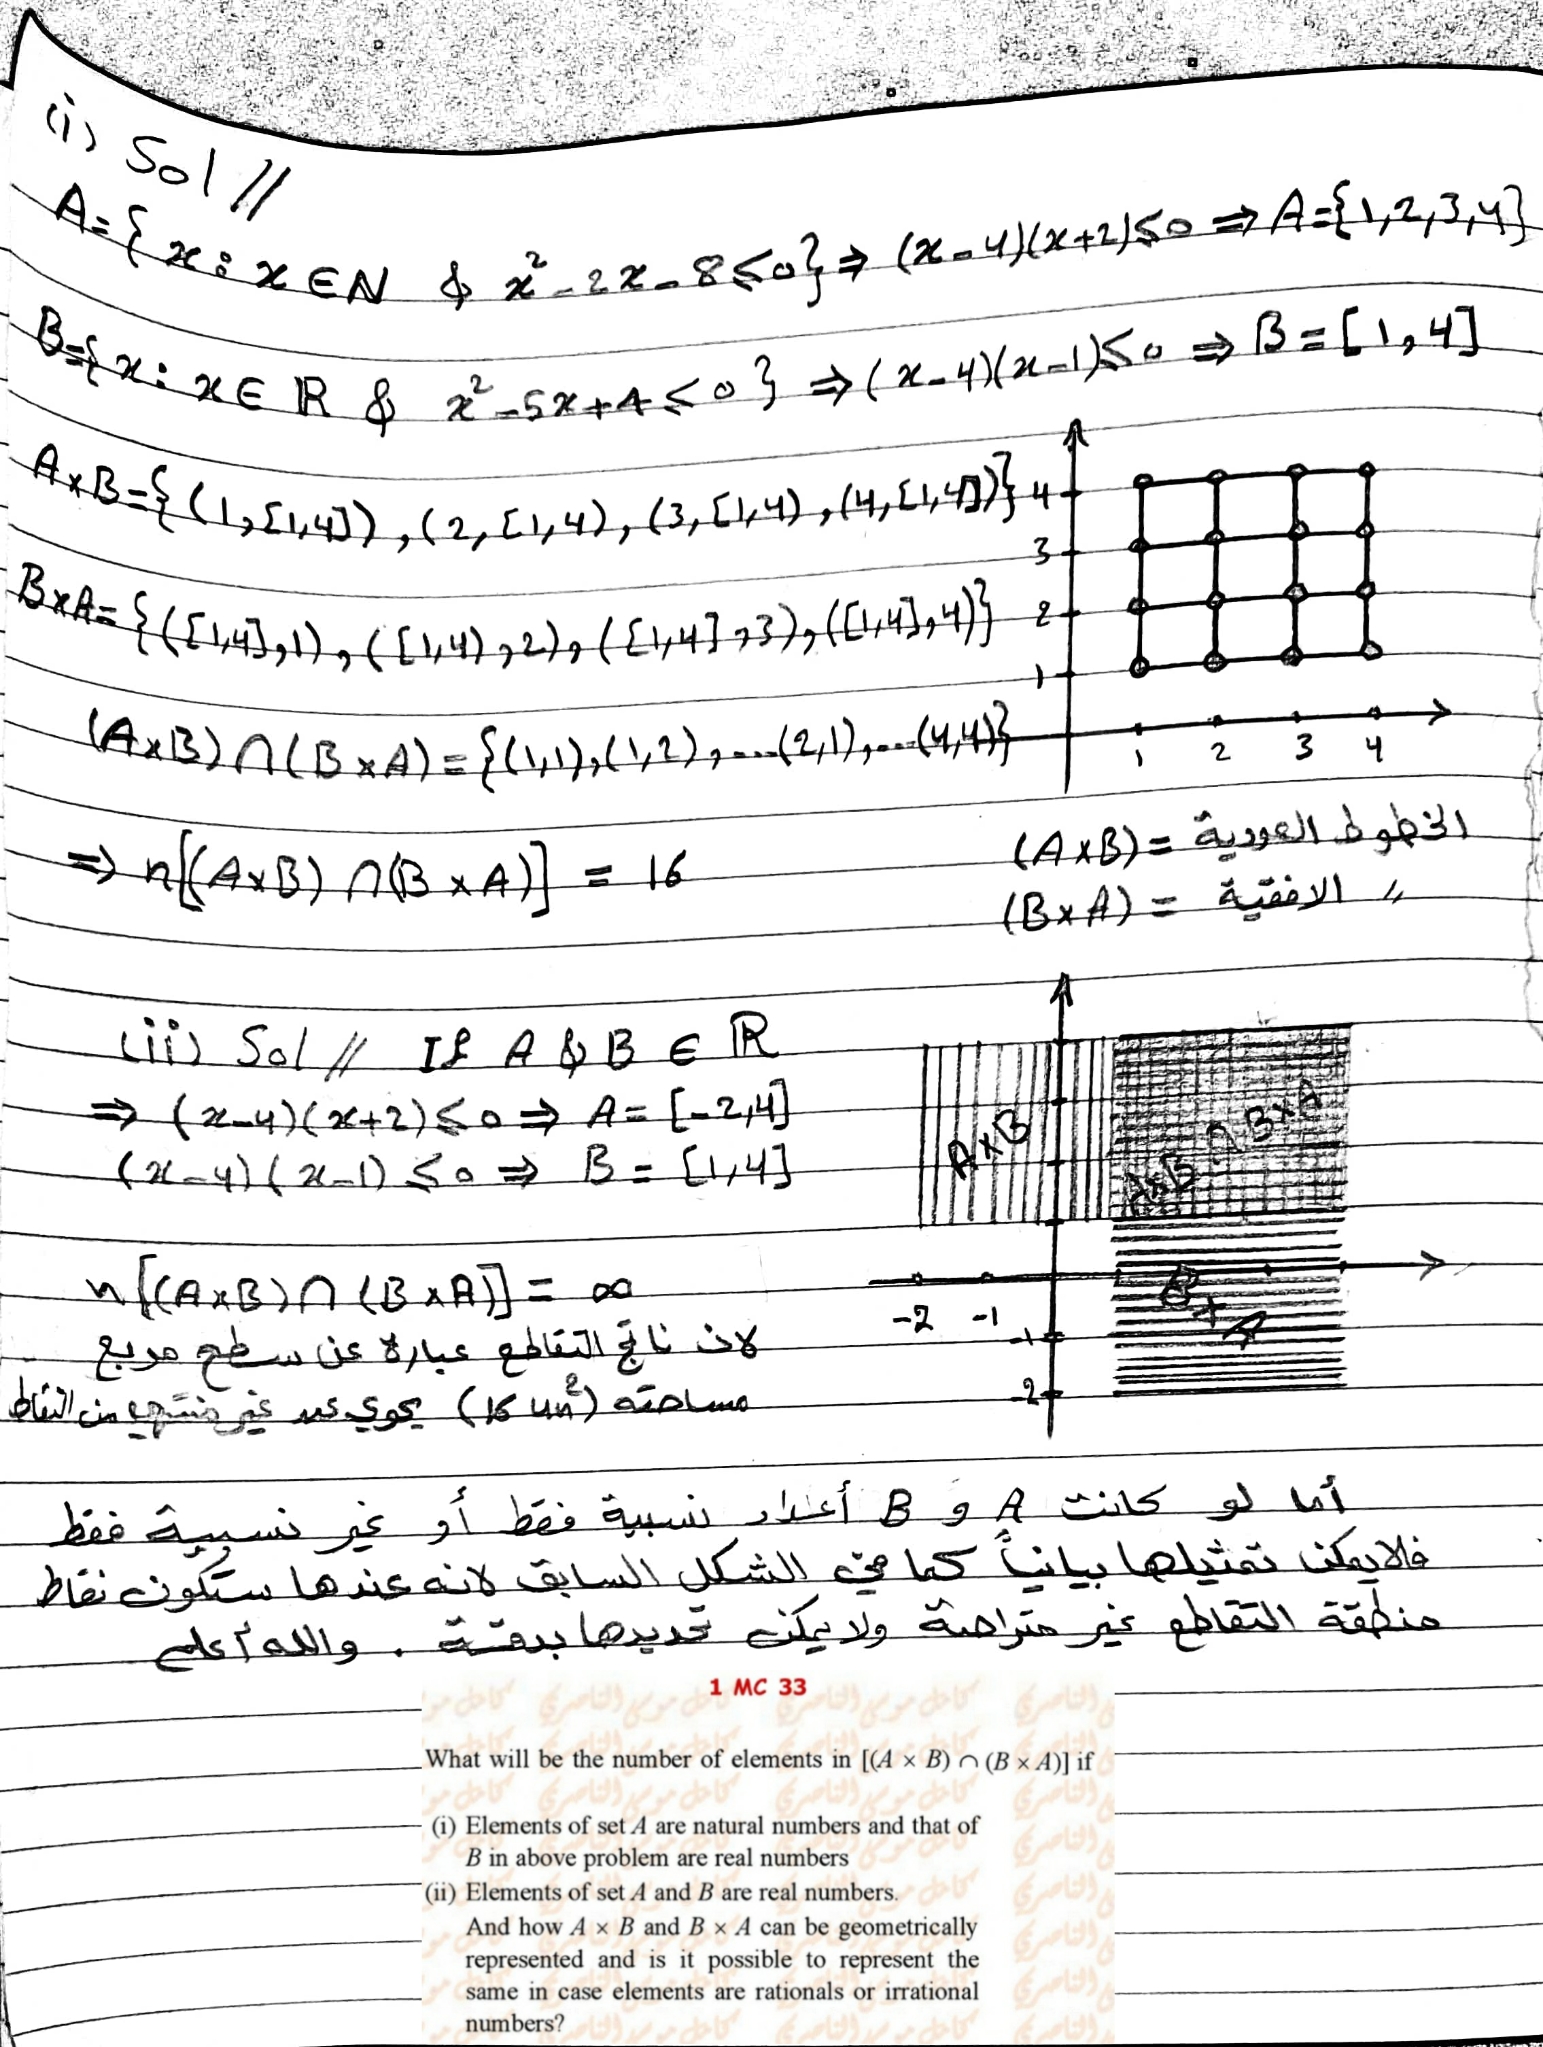 (i) Sol //
A={x : x ∈ N & x² - 2x - 8 ≤ 0} ⇒ (x-4)(x+2) ≤ 0 ⇒ A={1,2,3,4}
B={x : x ∈ ℝ & x² - 5x + 4 ≤ 0} ⇒ (x-4)(x-1) ≤ 0 ⇒ B = [1,4]
A×B={(1,[1,4]), (2,[1,4), (3,[1,4), (4,[1,4])}
B×A={([1,4],1), ([1,4),2), ([1,4],3), ([1,4],4)}
(A×B)∩(B×A)={(1,1),(1,2),....(2,1),...(4,4)}
⇒ n[(A×B)∩(B×A)] = 16
4
3
2
1
1 2 3 4
(A×B) = الخطوط العمودية
(B×A) = الافقية 〃
(ii) Sol // If A & B ∈ ℝ
⇒ (x-4)(x+2) ≤ 0 ⇒ A = [-2,4]
(x-4)(x-1) ≤ 0 ⇒ B = [1,4]
n[(A×B)∩(B×A)] = ∞
لان ناتج التقاطع عبارة عن سطح مربع
مساحته (16 un²) يحوي عدد غير منتهي من النقاط
A×B
A×B ∩ B×A
B×A
-2 -1
-1
-2
أما لو كانت A و B أعداد نسبية فقط أو غير نسبية فقط
فلا يمكن تمثيلها بيانياً كما في الشكل السابق لانه عندها ستكون نقاط
منطقة التقاطع غير متراصة ولا يمكن تحديدها بدقة . والله أعلم
1 MC 33
What will be the number of elements in [(A × B) ∩ (B × A)] if
(i) Elements of set A are natural numbers and that of
B in above problem are real numbers
(ii) Elements of set A and B are real numbers.
And how A × B and B × A can be geometrically
represented and is it possible to represent the
same in case elements are rationals or irrational
numbers?